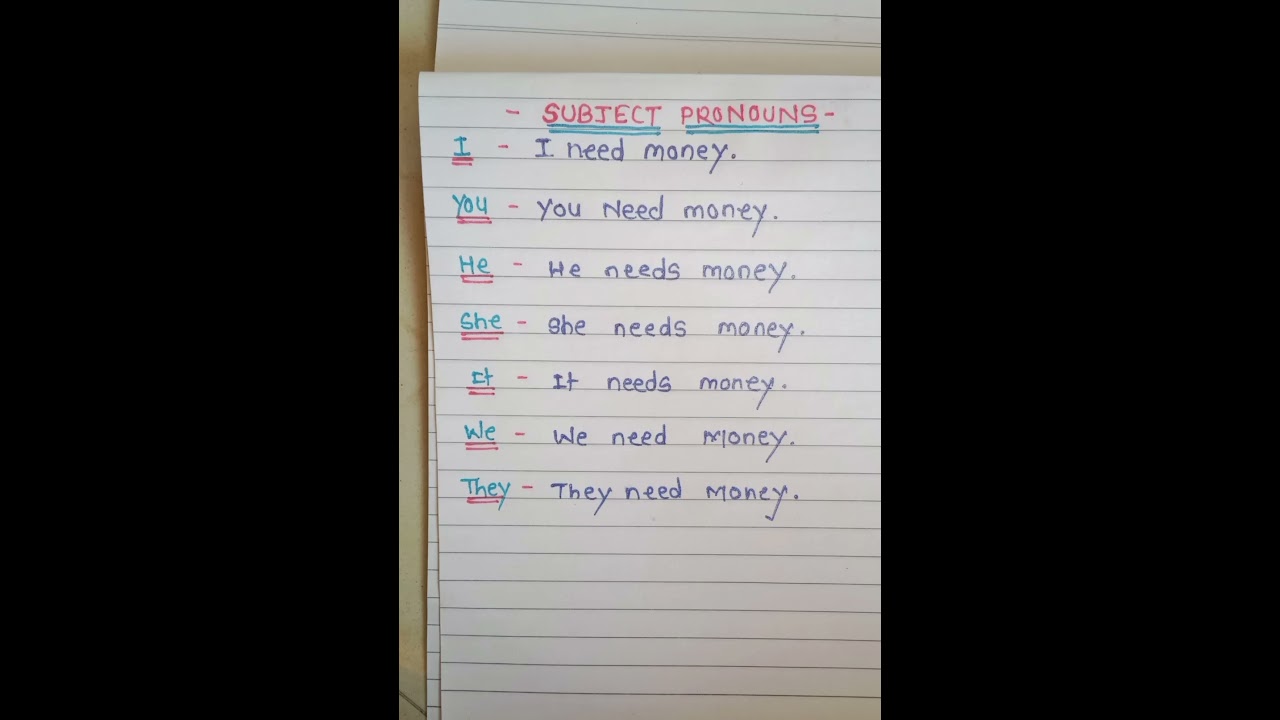 - SUBJECT PRONOUNS -
I - I need money.
You - You Need money.
He - He needs money.
She - She needs money.
It - It needs money.
We - We need Money.
They - They need Money.